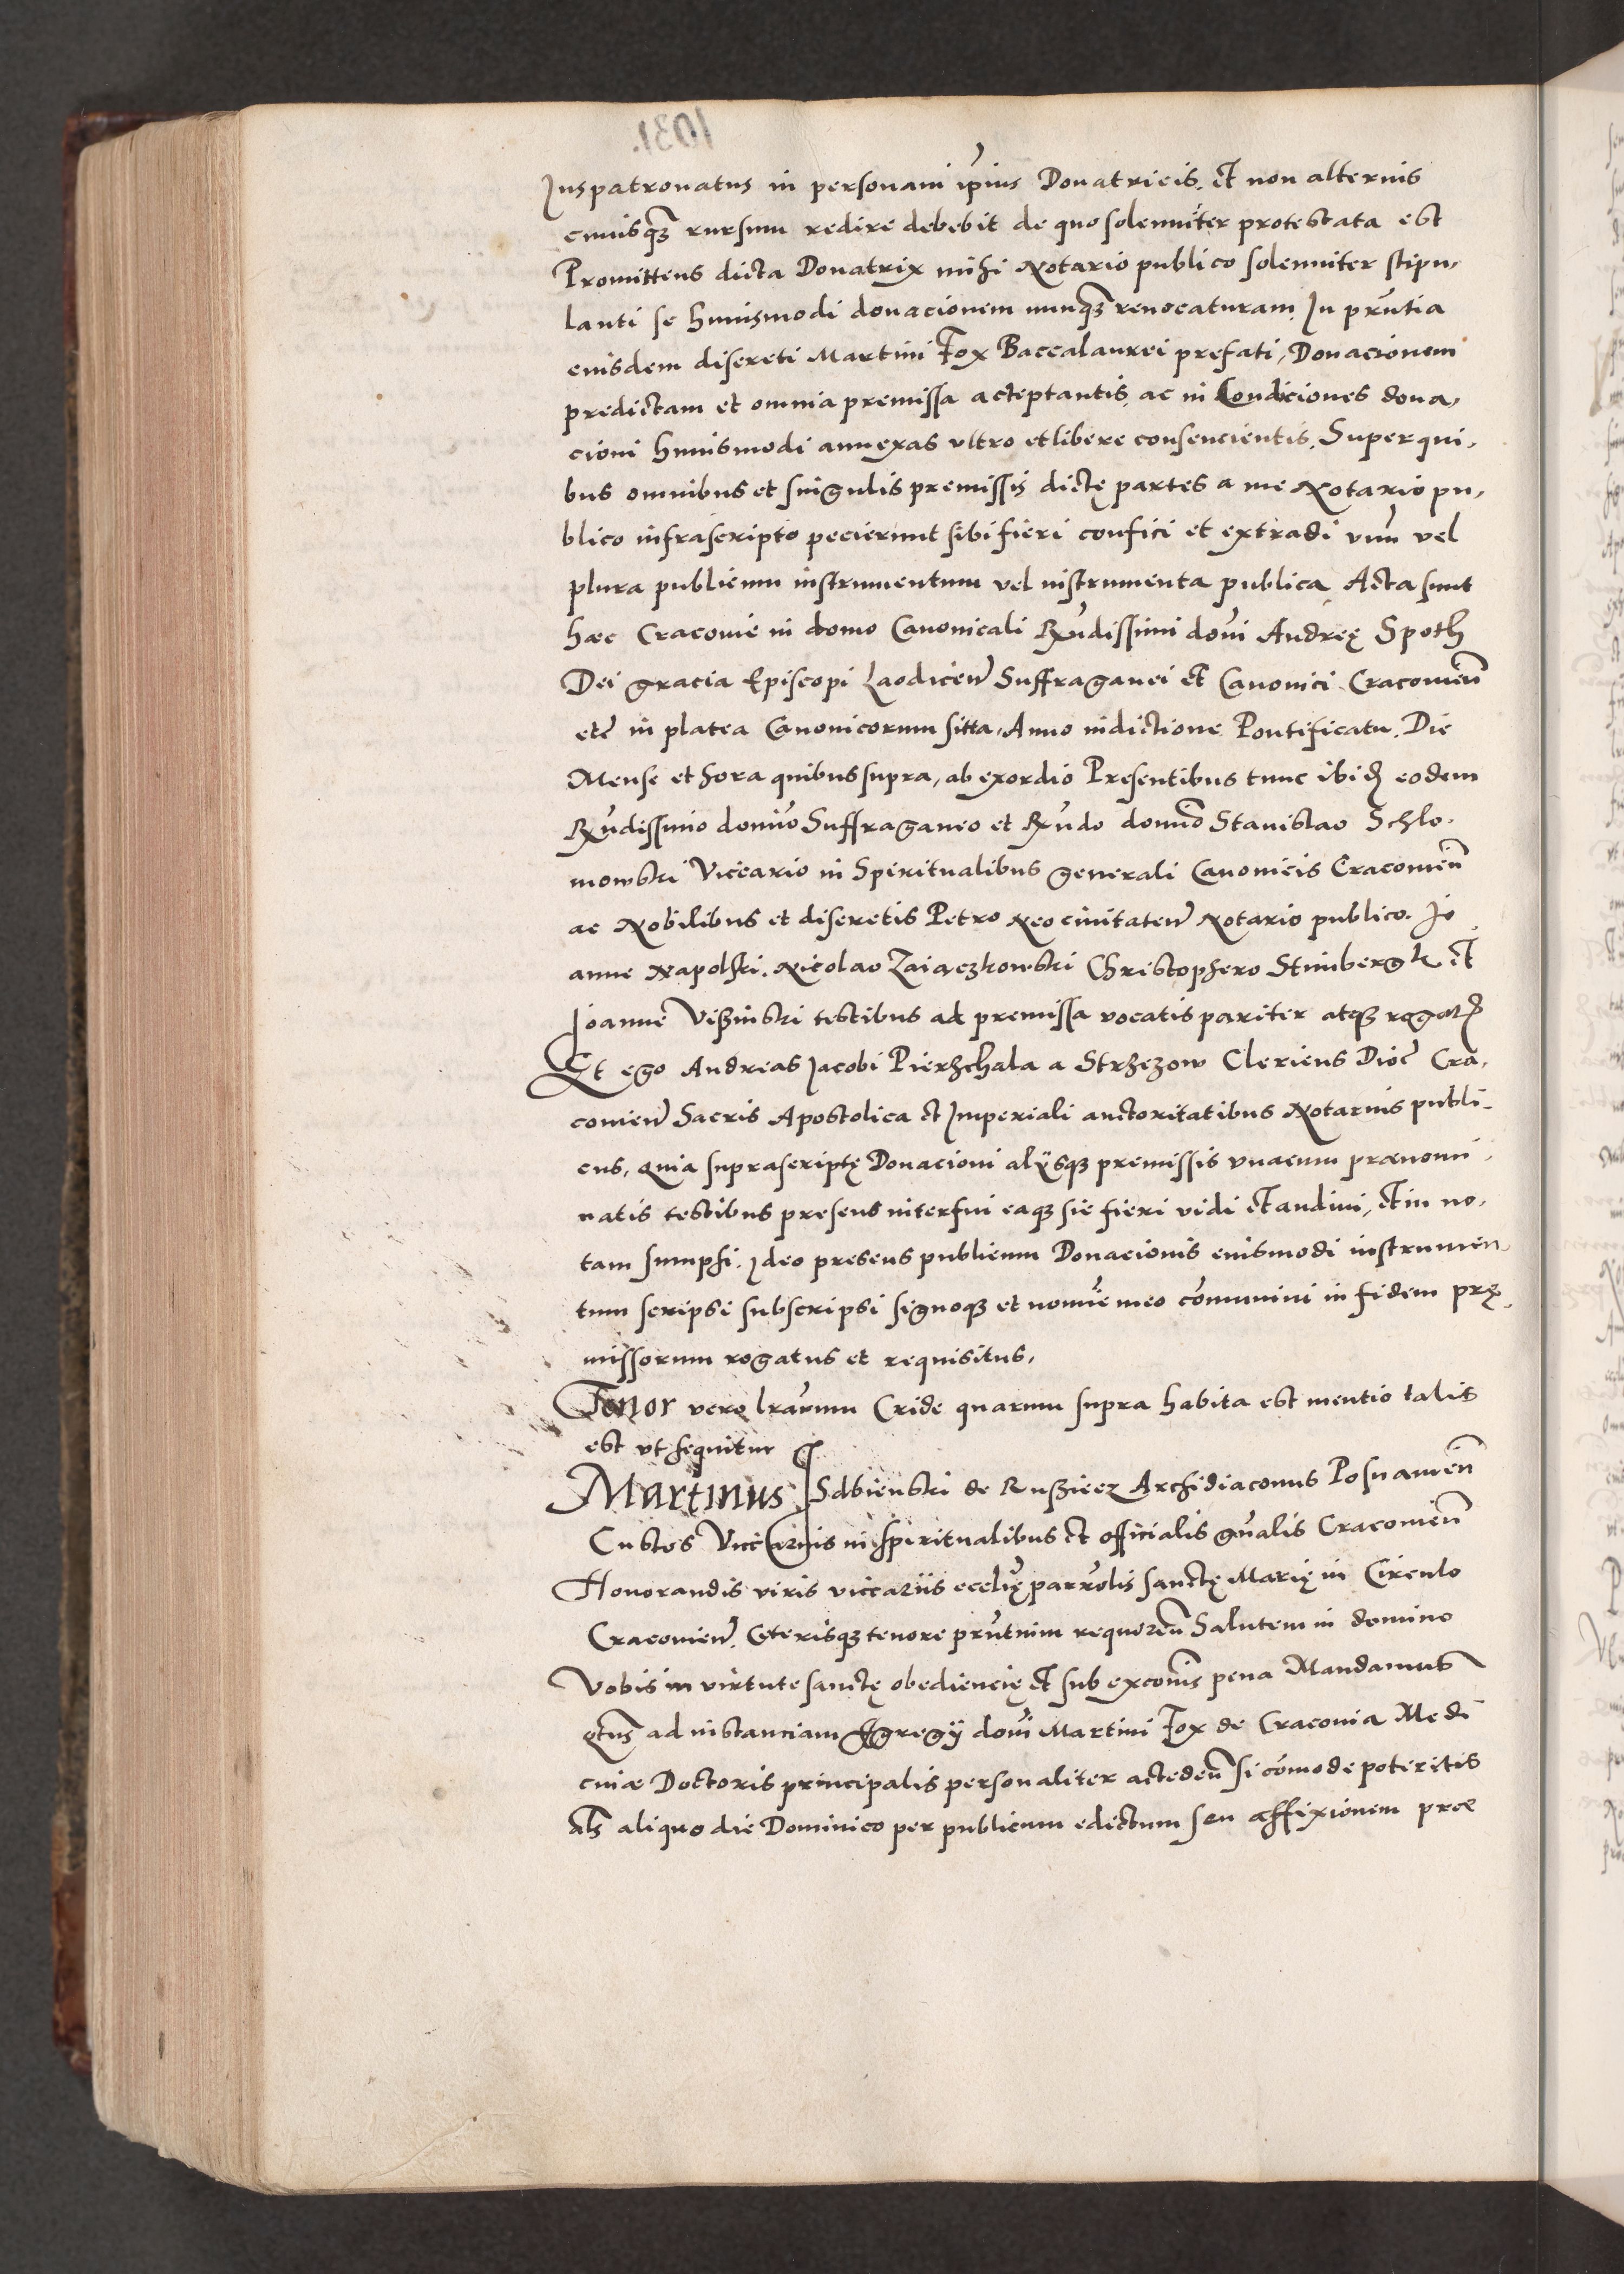 1031.
Juspatronatus in personam ip̄ius Donatricis. et non alterius
cuiusqȝ rursum redire debebit de quo solenniter protestata est
Promittens dicta Donatrix mihi Notario publico solenniter stipu,
lanti se huiusmodi donacionem nunqȝ reuocaturam. In prn̄tia
eiusdem discreti Martini Fox Baccalaurei prefati, Donacionem
predictam et omnia premissa acceptantis, ac in Condiciones dona,
cioni huiusmodi annexas vltro et libere consencientis. Super qui,
bus omnibus et singulis premissis dictę partes a me Notario pu,
blico infrascripto pecierunt sibi fieri confici et extradi vnū vel
plura publicum instrumentum vel instrumenta publica Acta sunt
hæc Cracouie in domo Canonicali Rn̄dissimi don̄i Andreę Spoth
Dei gracia Episcopi Laodicen̄ Suffraganei et Canonici Cracouien̄
etc̄ in platea Canonicorum sitta, Anno indictione Pontificatu. Die
Mense et hora quibus supra, ab exordio Presentibus tunc ibid eodem
Rn̄dissimo domīo Suffraganeo et Rn̄do domīo Stanislao Schlo.
mowski Viccario in Spiritualibus generali Canonicis Cracouien̄
ac Nobilibus et discretis Petro Neociuitaten̄ Notario publico. Jo
anne Napolski. Nicolao Zaiaczkowski Christophero Stinbergk et
Joanne Vißinski testibus ad premissa vocatis pariter atqȝ rogatꝭ
Et ego Andreas Jacobi Pierzchala a Strzezow Clericus Dioc̄ Cra,
couien̄ Sacris Apostolica et Imperiali auctoritatibus Notarius publi-
cus, quia suprascriptę Donacioni alijsqȝ premissis vnacum prænomi
natis testibus presens interfui eaqȝ sic fieri vidi et audiui, et in no,
tam sumpsi. Ideo presens publicum Donacionis eiusmodi instrumen,
tum scripsi subscripsi signoqȝ et nomīe meo com̄uniui in fidem prę,
missorum rogatus et requisitus,
Tenor vero lrārum Cride quarum supra habita est mentio talis
est vt sequitur
Martinus Jsdbienski de Rußiecz Archidiaconus Posnanien̄
Custos Viccarius in spiritualibus et officialis gn̄alis Cracouien̄
Honorandis viris viccariis ecclīę parrol̄is sanctę Marię in Circulo
Cracouien̄. Ceterisqȝ tenore prn̄tium requiren̄ Salutem in domino
Vobis in virtute sanctę obediencię et sub excōnis pena Mandamus
qtn̄s ad instanciam Egregij don̄i Martini Fox de Cracouia Medi
cinæ Doctoris principalis personaliter acceden̄ si com̄ode poteritis
al̄s aliquo die Dominico per publicum edictum seu affixionem præ